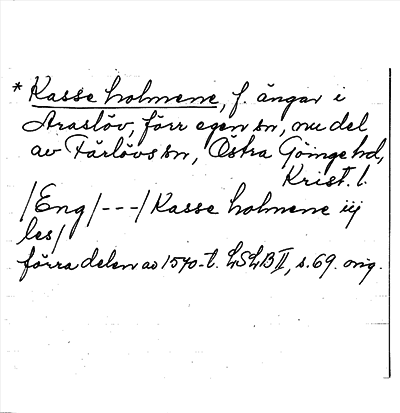 * Kasse holmene, f. ängar i
Araslöv, förr egen sn, nu del
av Färlövs sn, Östra Göinge hd,
Krist. l.
/Eng/---/Kasse holmene iij
les/
förra delen av 1570-t. LSLB II, s. 69. orig.